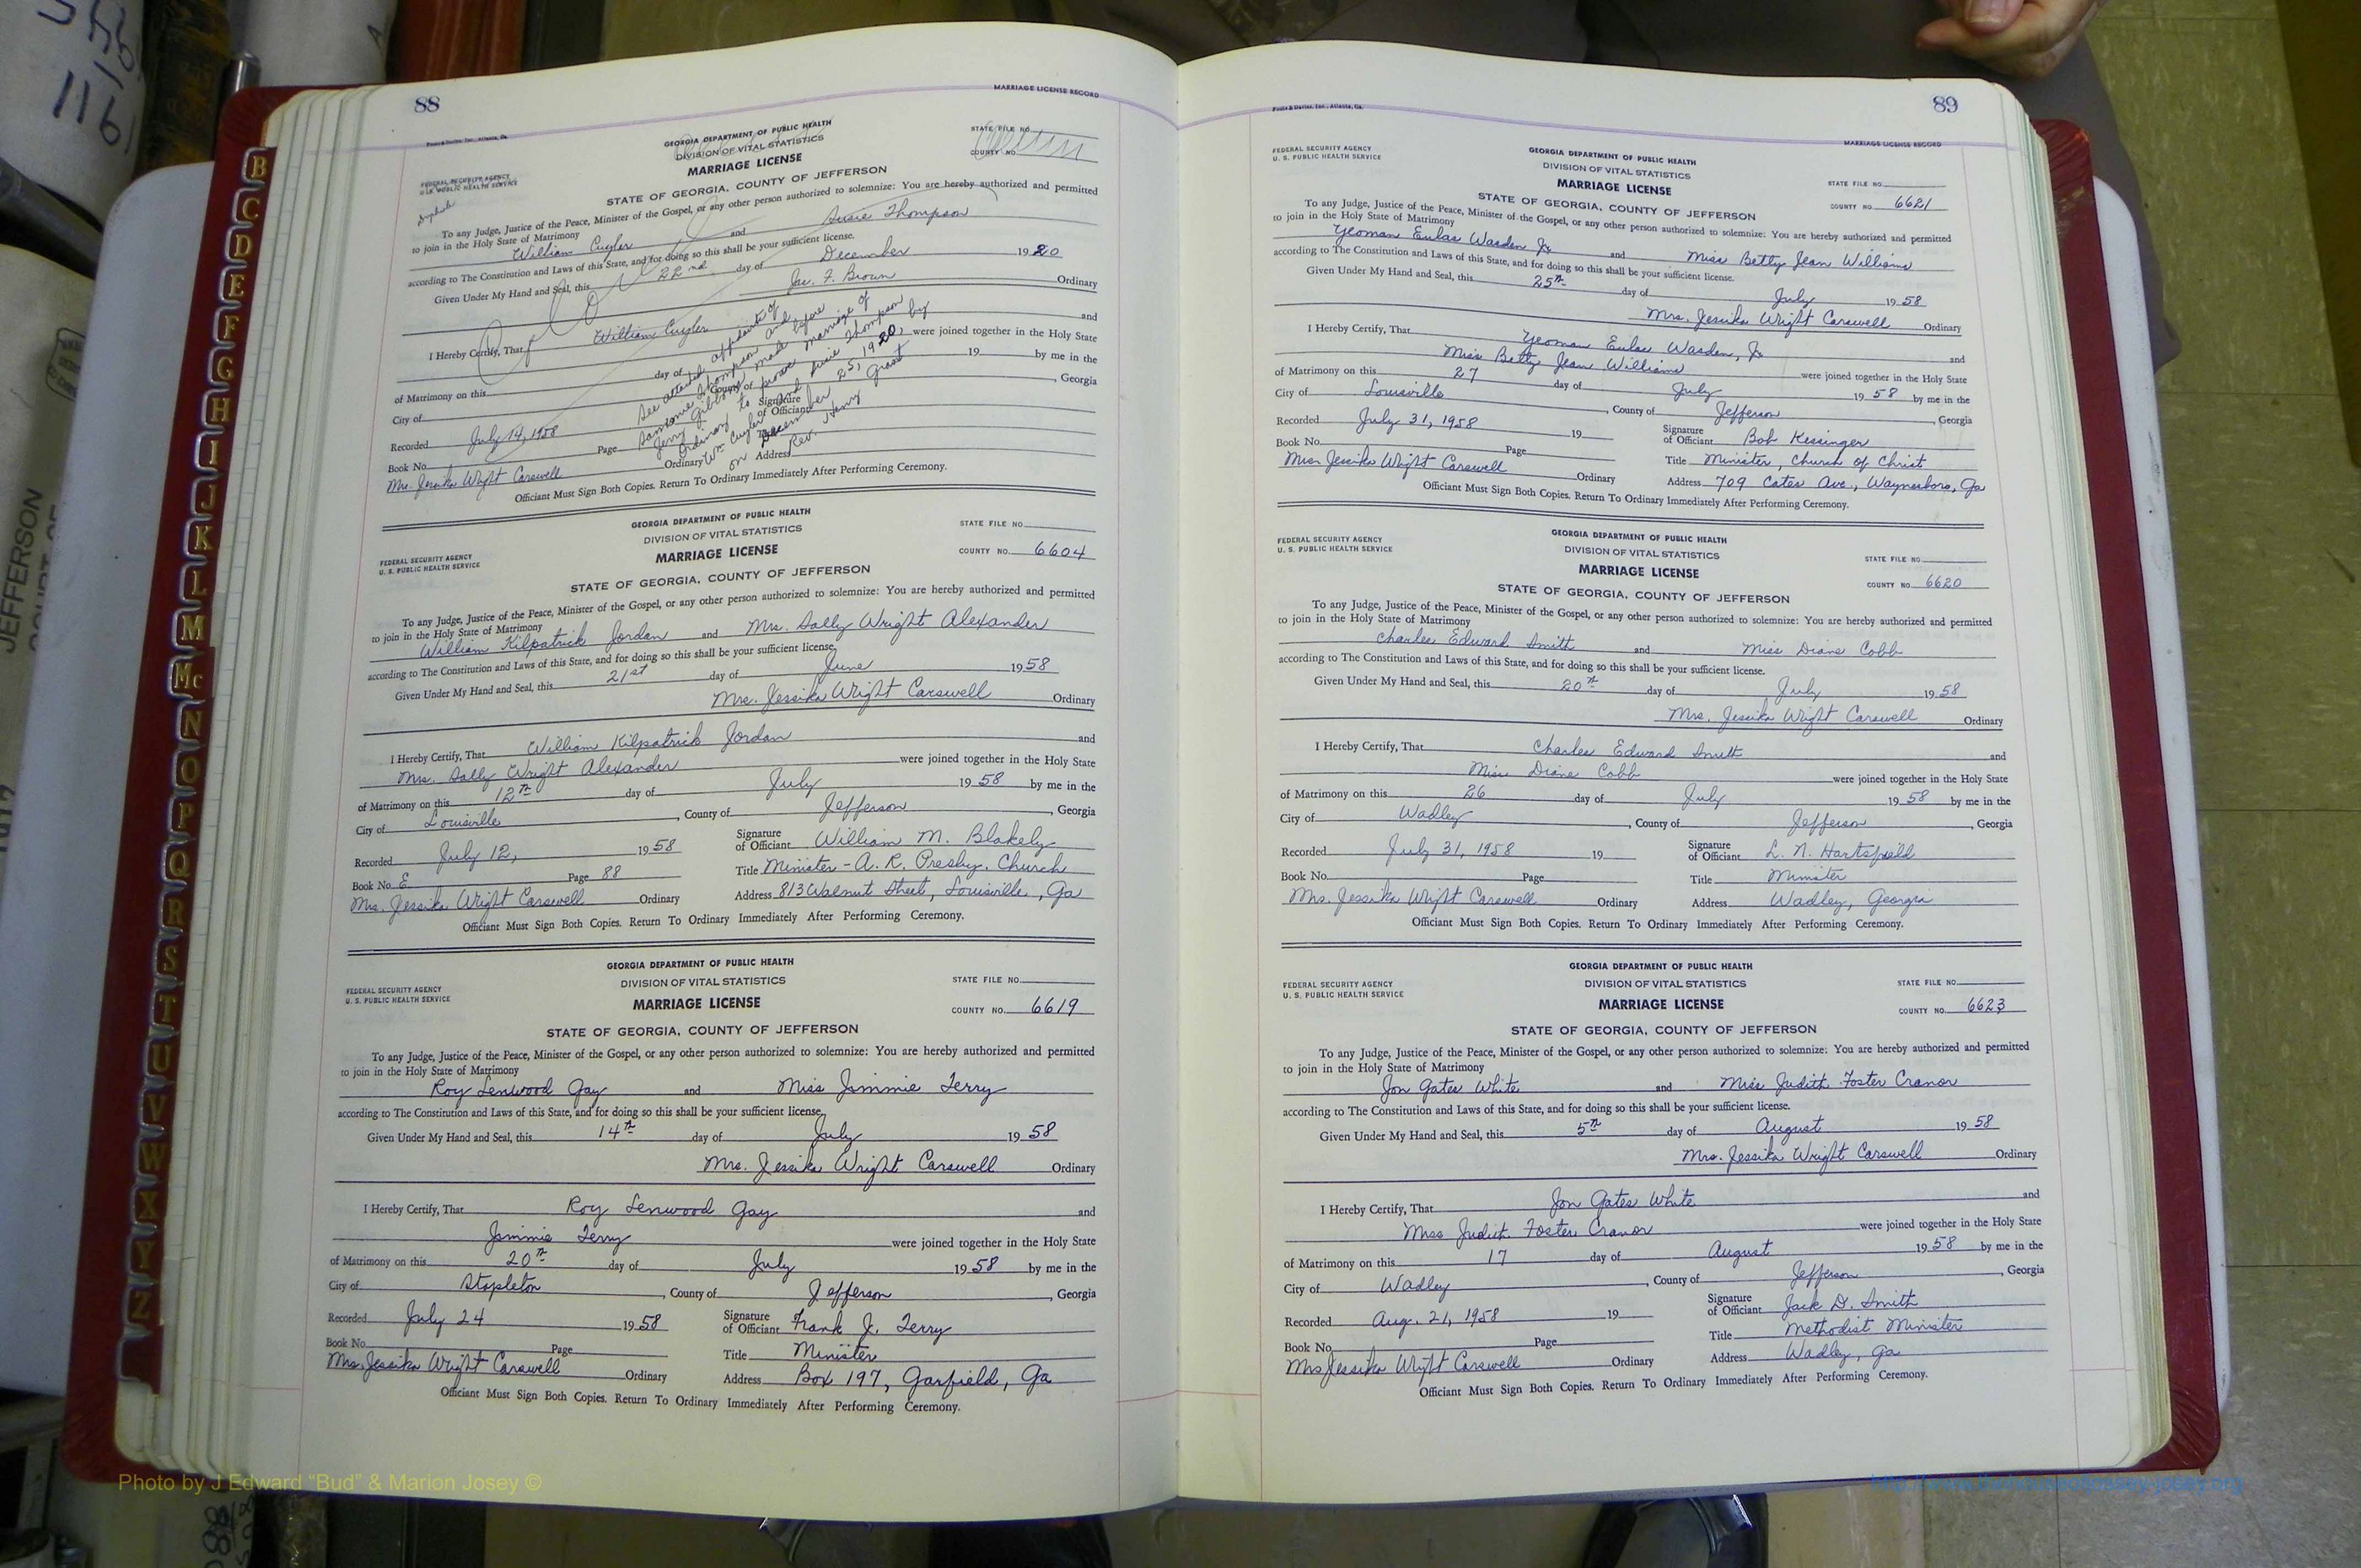 88
MARRIAGE LICENSE RECORD
Foote & Davies, Inc., Atlanta, Ga.
GEORGIA DEPARTMENT OF PUBLIC HEALTH
DIVISION OF VITAL STATISTICS
MARRIAGE LICENSE
STATE FILE NO.
COUNTY NO.
FEDERAL SECURITY AGENCY
U. S. PUBLIC HEALTH SERVICE
STATE OF GEORGIA, COUNTY OF JEFFERSON
To any Judge, Justice of the Peace, Minister of the Gospel, or any other person authorized to solemnize: You are hereby authorized and permitted
to join in the Holy State of Matrimony
William Cuyler and Susie Thompson
according to The Constitution and Laws of this State, and for doing so this shall be your sufficient license.
Given Under My Hand and Seal, this 22nd day of December 1920
Jas. F. Brown Ordinary
I Hereby Certify, That William Cuyler and
were joined together in the Holy State
of Matrimony on this day of 19 by me in the
City of County of , Georgia
See attached affidavits of
Sansome Thompson and
Jerry Gibbons, made before
Ordinary to prove marriage of
Wm Cuyler and Susie Thompson
on December 25, 1920, by
Rev. Henry Grant
Recorded July 14, 1958
Signature of Officiant
Book No. Page
Mrs. Jessika Wright Carswell Ordinary Address
Officiant Must Sign Both Copies. Return To Ordinary Immediately After Performing Ceremony.
GEORGIA DEPARTMENT OF PUBLIC HEALTH
DIVISION OF VITAL STATISTICS
MARRIAGE LICENSE
STATE FILE NO.
COUNTY NO. 6604
FEDERAL SECURITY AGENCY
U. S. PUBLIC HEALTH SERVICE
STATE OF GEORGIA, COUNTY OF JEFFERSON
To any Judge, Justice of the Peace, Minister of the Gospel, or any other person authorized to solemnize: You are hereby authorized and permitted
to join in the Holy State of Matrimony
William Kilpatrick Jordan and Mrs. Sally Wright Alexander
according to The Constitution and Laws of this State, and for doing so this shall be your sufficient license.
Given Under My Hand and Seal, this 21st day of June 1958
Mrs. Jessika Wright Carswell Ordinary
I Hereby Certify, That William Kilpatrick Jordan and
Mrs. Sally Wright Alexander were joined together in the Holy State
of Matrimony on this 12th day of July 1958 by me in the
City of Louisville, County of Jefferson, Georgia
Recorded July 12, 1958
Signature of Officiant William M. Blakely
Book No. E Page 88
Title Minister - A. R. Presby. Church
Mrs. Jessika Wright Carswell Ordinary
Address 813 Walnut Street, Louisville, Ga
Officiant Must Sign Both Copies. Return To Ordinary Immediately After Performing Ceremony.
GEORGIA DEPARTMENT OF PUBLIC HEALTH
DIVISION OF VITAL STATISTICS
MARRIAGE LICENSE
STATE FILE NO.
COUNTY NO. 6619
FEDERAL SECURITY AGENCY
U. S. PUBLIC HEALTH SERVICE
STATE OF GEORGIA, COUNTY OF JEFFERSON
To any Judge, Justice of the Peace, Minister of the Gospel, or any other person authorized to solemnize: You are hereby authorized and permitted
to join in the Holy State of Matrimony
Roy Lenwood Gay and Miss Jimmie Terry
according to The Constitution and Laws of this State, and for doing so this shall be your sufficient license.
Given Under My Hand and Seal, this 14th day of July 1958
Mrs. Jessika Wright Carswell Ordinary
I Hereby Certify, That Roy Lenwood Gay and
Jimmie Terry were joined together in the Holy State
of Matrimony on this 20th day of July 1958 by me in the
City of Stapleton, County of Jefferson, Georgia
Recorded July 24 1958
Signature of Officiant Frank J. Terry
Book No. Page
Title Minister
Mrs. Jessika Wright Carswell Ordinary
Address Box 197, Garfield, Ga
Officiant Must Sign Both Copies. Return To Ordinary Immediately After Performing Ceremony.
89
Foote & Davies, Inc., Atlanta, Ga.
MARRIAGE LICENSE RECORD
FEDERAL SECURITY AGENCY
U. S. PUBLIC HEALTH SERVICE
GEORGIA DEPARTMENT OF PUBLIC HEALTH
DIVISION OF VITAL STATISTICS
MARRIAGE LICENSE
STATE FILE NO.
COUNTY NO. 6621
STATE OF GEORGIA, COUNTY OF JEFFERSON
To any Judge, Justice of the Peace, Minister of the Gospel, or any other person authorized to solemnize: You are hereby authorized and permitted
to join in the Holy State of Matrimony
Yeoman Eulas Wasden Jr. and Miss Betty Jean Williams
according to The Constitution and Laws of this State, and for doing so this shall be your sufficient license.
Given Under My Hand and Seal, this 25th day of July 1958
Mrs. Jessika Wright Carswell Ordinary
I Hereby Certify, That Yeoman Eulas Wasden, Jr. and
Miss Betty Jean Williams were joined together in the Holy State
of Matrimony on this 27 day of July 1958 by me in the
City of Louisville, County of Jefferson, Georgia
Recorded July 31, 1958 19
Signature of Officiant Bob Kessinger
Book No. Page
Title Minister, Church of Christ
Mrs. Jessika Wright Carswell Ordinary
Address 709 Cates Ave., Waynesboro, Ga
Officiant Must Sign Both Copies. Return To Ordinary Immediately After Performing Ceremony.
GEORGIA DEPARTMENT OF PUBLIC HEALTH
DIVISION OF VITAL STATISTICS
MARRIAGE LICENSE
STATE FILE NO.
COUNTY NO. 6620
FEDERAL SECURITY AGENCY
U. S. PUBLIC HEALTH SERVICE
STATE OF GEORGIA, COUNTY OF JEFFERSON
To any Judge, Justice of the Peace, Minister of the Gospel, or any other person authorized to solemnize: You are hereby authorized and permitted
to join in the Holy State of Matrimony
Charles Edward Smith and Miss Diane Cobb
according to The Constitution and Laws of this State, and for doing so this shall be your sufficient license.
Given Under My Hand and Seal, this 20th day of July 1958
Mrs. Jessika Wright Carswell Ordinary
I Hereby Certify, That Charles Edward Smith and
Miss Diane Cobb were joined together in the Holy State
of Matrimony on this 26 day of July 1958 by me in the
City of Wadley, County of Jefferson, Georgia
Recorded July 31, 1958 19
Signature of Officiant L. N. Hartsfield
Book No. Page
Title Minister
Mrs. Jessika Wright Carswell Ordinary
Address Wadley, Georgia
Officiant Must Sign Both Copies. Return To Ordinary Immediately After Performing Ceremony.
GEORGIA DEPARTMENT OF PUBLIC HEALTH
DIVISION OF VITAL STATISTICS
MARRIAGE LICENSE
STATE FILE NO.
COUNTY NO. 6623
FEDERAL SECURITY AGENCY
U. S. PUBLIC HEALTH SERVICE
STATE OF GEORGIA, COUNTY OF JEFFERSON
To any Judge, Justice of the Peace, Minister of the Gospel, or any other person authorized to solemnize: You are hereby authorized and permitted
to join in the Holy State of Matrimony
Jon Gates White and Miss Judith Foster Cranor
according to The Constitution and Laws of this State, and for doing so this shall be your sufficient license.
Given Under My Hand and Seal, this 5th day of August 1958
Mrs. Jessika Wright Carswell Ordinary
I Hereby Certify, That Jon Gates White and
Miss Judith Foster Cranor were joined together in the Holy State
of Matrimony on this 17 day of August 1958 by me in the
City of Wadley, County of Jefferson, Georgia
Recorded Aug. 21, 1958 19
Signature of Officiant Jack D. Smith
Book No. Page
Title Methodist Minister
Mrs Jessika Wright Carswell Ordinary
Address Wadley, Ga
Officiant Must Sign Both Copies. Return To Ordinary Immediately After Performing Ceremony.
B
C
D
E
F
G
H
I
J
K
L
M
Mc
N
O
P
Q
R
S
T
U
V
W
X
Y
Z
JEFFERSON
Photo by J Edward "Bud" & Marion Josey ©